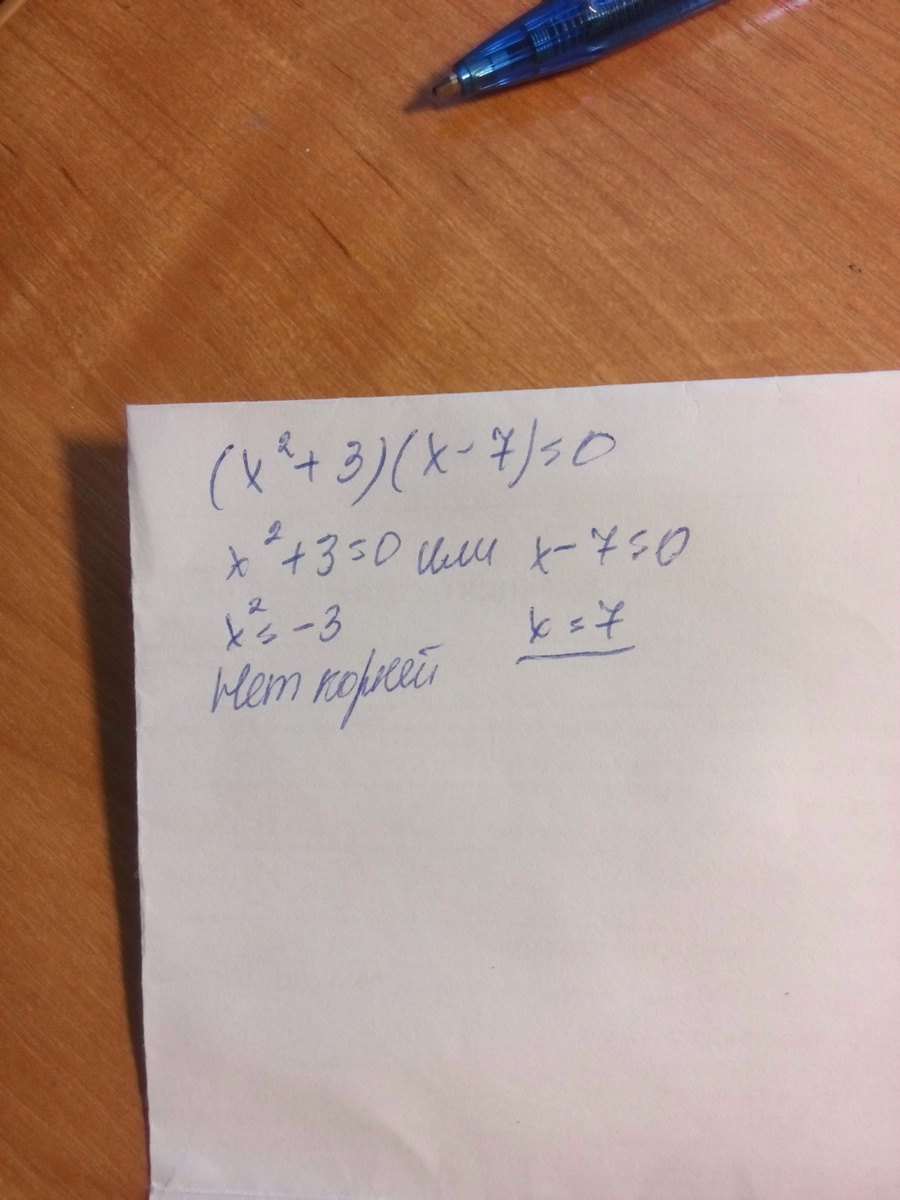 (x²+3)(x-7)=0
x²+3=0 или x-7=0
x²=-3 x=7
Нет корней